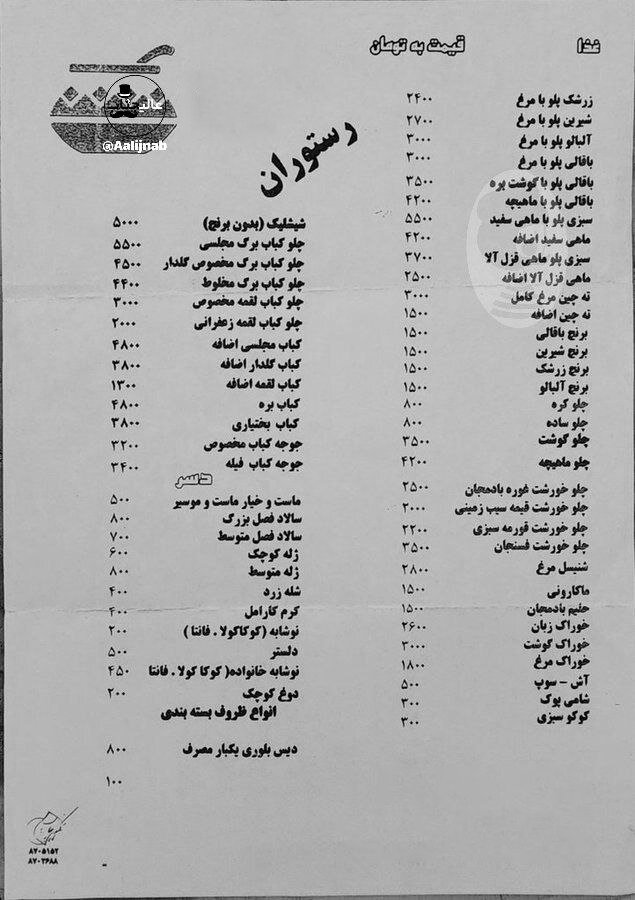 غذا قیمت به تومان
زرشک پلو با مرغ ۲۴۰۰
شیرین پلو با مرغ ۲۷۰۰
آلبالو پلو با مرغ ۳۰۰۰
باقالی پلو با مرغ ۳۰۰۰
باقالی پلو با گوشت بره ۳۵۰۰
باقالی پلو با ماهیچه ۴۲۰۰
سبزی پلو با ماهی سفید ۵۵۰۰
ماهی سفید اضافه ۴۲۰۰
سبزی پلو ماهی قزل آلا ۳۷۰۰
ماهی قزل آلا اضافه ۲۵۰۰
ته چین مرغ کامل ۳۰۰۰
ته چین اضافه ۱۵۰۰
برنج باقالی ۱۵۰۰
برنج شیرین ۱۵۰۰
برنج زرشک ۱۵۰۰
برنج آلبالو ۱۵۰۰
چلو کره ۸۰۰
چلو ساده ۸۰۰
چلو گوشت ۳۵۰۰
چلو ماهیچه ۴۲۰۰
چلو خورشت غوره بادمجان ۲۵۰۰
چلو خورشت قیمه سیب زمینی ۲۰۰۰
چلو خورشت قورمه سبزی ۲۲۰۰
چلو خورشت فسنجان ۳۵۰۰
شنیسل مرغ ۲۸۰۰
ماکارونی ۱۵۰۰
حلیم بادمجان ۱۵۰۰
خوراک زبان ۲۶۰۰
خوراک گوشت ۳۰۰۰
خوراک مرغ ۱۸۰۰
آش - سوپ ۵۰۰
شامی پوک ۳۰۰
کوکو سبزی ۳۰۰
عالیجناب
@Aalijnab
رستوران
شیشلیک (بدون برنج) ۵۰۰۰
چلو کباب برگ مجلسی ۵۵۰۰
چلو کباب برگ مخصوص گلدار ۴۵۰۰
چلو کباب برگ مخلوط ۴۴۰۰
چلو کباب لقمه مخصوص ۳۰۰۰
چلو کباب لقمه زعفرانی ۲۰۰۰
کباب مجلسی اضافه ۴۸۰۰
کباب گلدار اضافه ۳۸۰۰
کباب لقمه اضافه ۱۳۰۰
کباب بره ۴۸۰۰
کباب بختیاری ۳۸۰۰
جوجه کباب مخصوص ۳۲۰۰
جوجه کباب فیله ۳۴۰۰
دسر
ماست و خیار ماست و موسیر ۵۰۰
سالاد فصل بزرگ ۸۰۰
سالاد فصل متوسط ۷۰۰
ژله کوچک ۶۰۰
ژله متوسط ۸۰۰
شله زرد ۴۰۰
کرم کارامل ۴۰۰
نوشابه (کوکاکولا . فانتا ) ۲۰۰
دلستر ۵۰۰
نوشابه خانواده( کوکا کولا . فانتا ۴۵۰
دوغ کوچک ۲۰۰
انواع ظروف بسته بندی
دیس بلوری یکبار مصرف ۸۰۰
۱۰۰
۸۷۰۵۱۵۲
۸۷۰۲۶۸۸